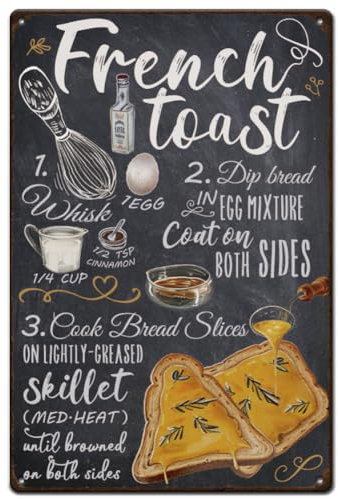 French
toast
1.
Whisk
1 EGG
1/4 CUP
1/2 TSP
CINNAMON
2. Dip bread
IN EGG MIXTURE
Coat on
BOTH SIDES
3. Cook Bread Slices
ON LIGHTLY-GREASED
skillet
(MED-HEAT)
until browned
on both sides